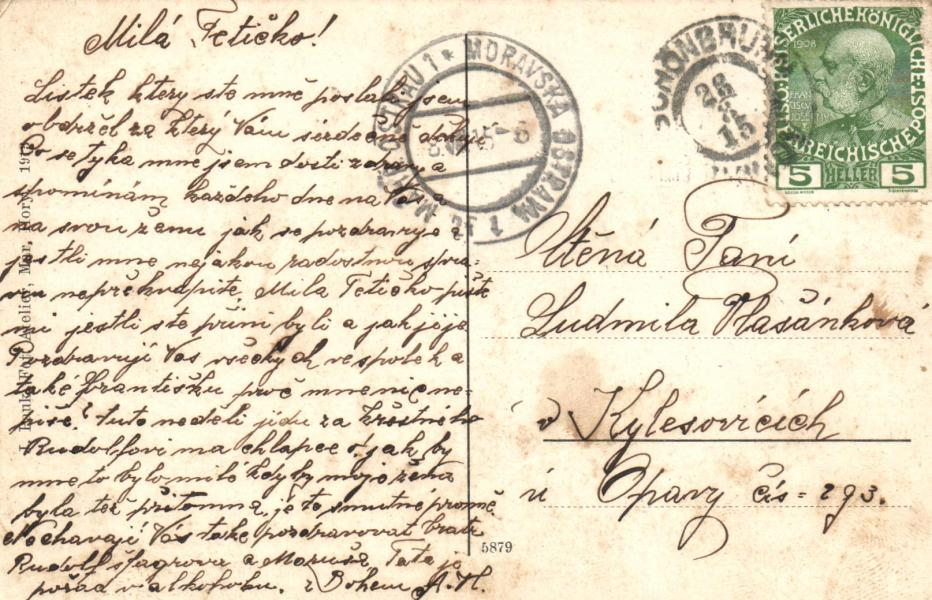 Milá Tetičko!
Lístek který ste mně poslali jsem
obdržel za který Vám srdečně děkuji
Co se tyka mne jsem dosti zdráv a
spomínám každeho dne na Vás a
na svou ženu jak se pozdravuje a
jestli mne nejakou radostnou sprá-
vu nepřekvapíte. Milá Tetičko pište
mi jestli ste přimi byli a jak jéje
Pozdravují Vás všeckých ve spolek a
také Františku proč mne nic ne-
píše? tuto nedeli jidu za křstného
Rudolfovi ma chlapce o jak by
mne to bylo miló kdyby moje žena
byla též přitomna je to smutné promě
Nechavají Vás take pozdravovat bratr
Rudolf Šfagrova a Maruša Tata je
pořád v alkoholu. z Bohem A.H.
J. Fot. Atelier, Mär. Horý 19
5879
MORAVSKÁ OSTRAVA 1
M. OSTRAU 1
SCHÖNBRUNN
28
15
KAISERLICHEKÖNIGLICHE
ÖSTERREICHISCHE POST
1908
5 HELLER 5
Ctěná Paní
Ludmila Vlašánková
v Kylešovicích
u Opavy čís = 293.